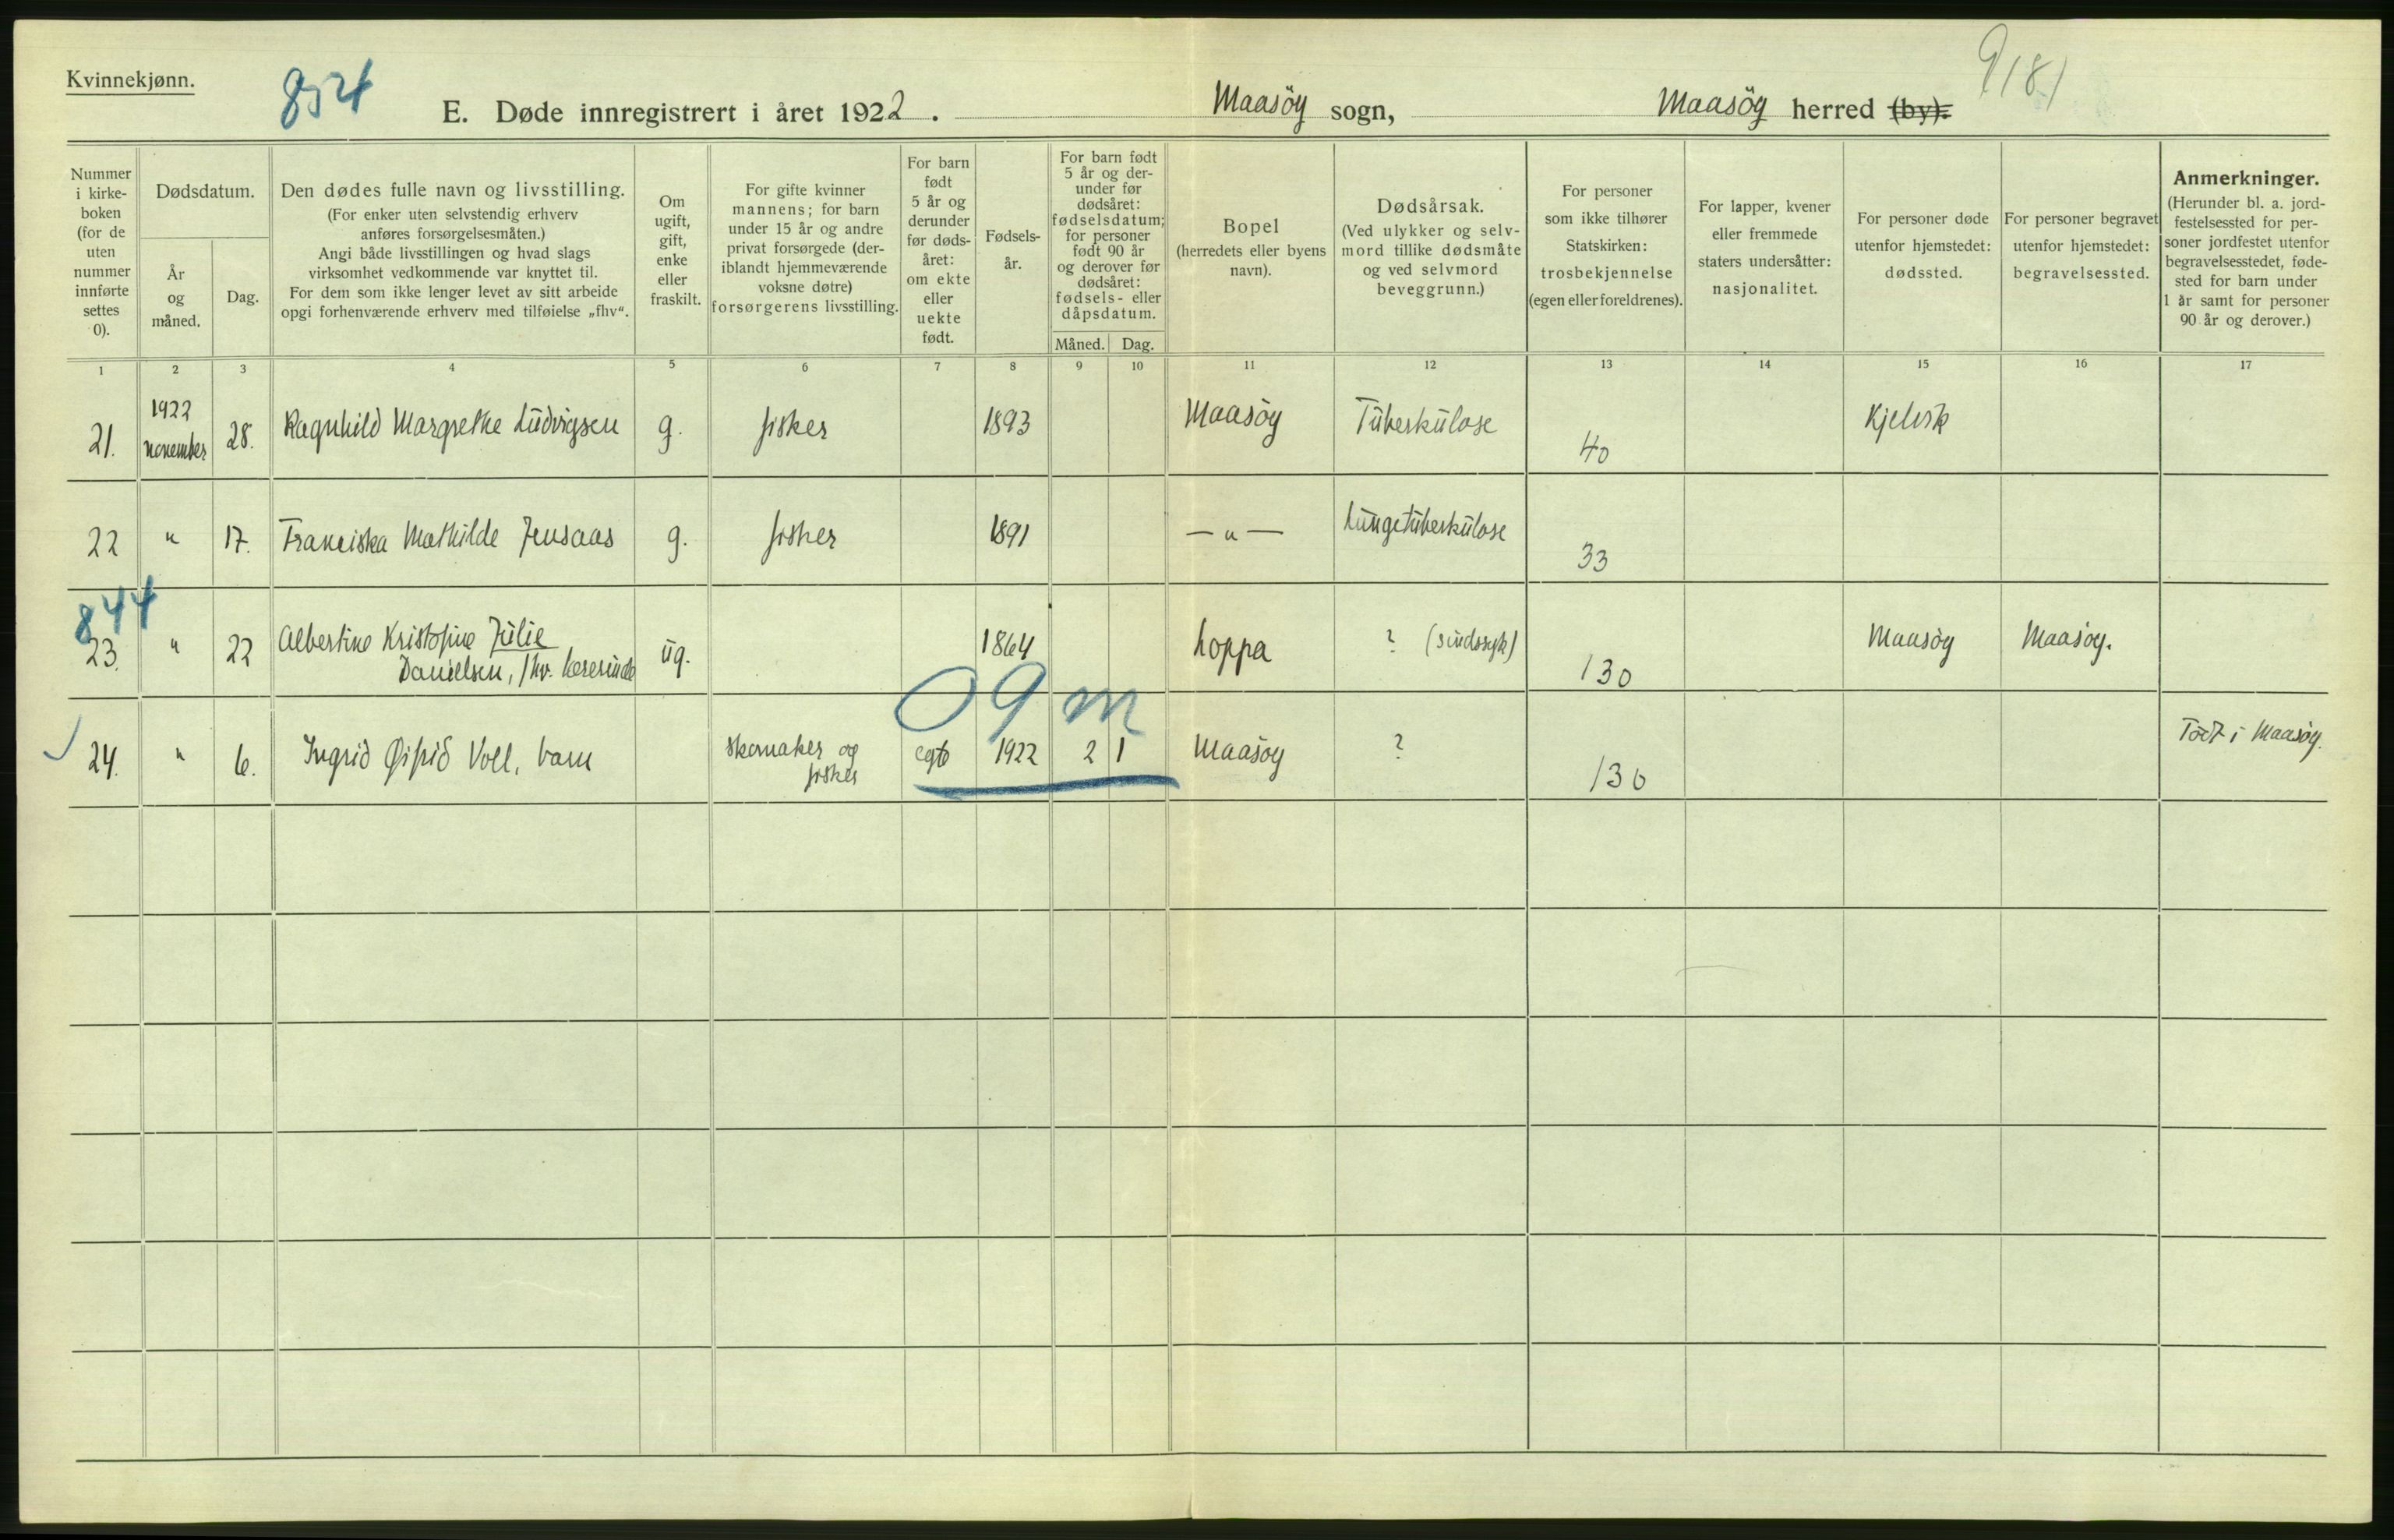 Kvinnekjønn.
8524
9181
E. Døde innregistrert i året 1922. Maasöy sogn, Maasöy herred (by).
Nummer
i kirke-
boken
(for de
uten
nummer
innførte
settes
0).
Dødsdatum.
År
og
måned.
Dag.
Den dødes fulle navn og livsstilling.
(For enker uten selvstendig erhverv
anføres forsørgelsesmåten.)
Angi både livsstillingen og hvad slags
virksomhet vedkommende var knyttet til.
For dem som ikke lenger levet av sitt arbeide
opgi forhenværende erhverv med tilføielse „fhv“.
Om
ugift,
gift,
enke
eller
fraskilt.
For gifte kvinner
mannens; for barn
under 15 år og andre
privat forsørgede (der-
iblandt hjemmeværende
voksne døtre)
forsørgerens livsstilling.
For barn
født
5 år og
derunder
før døds-
året:
om ekte
eller
uekte
født.
Fødsels-
år.
For barn født
5 år og der-
under før
dødsåret:
fødselsdatum;
for personer
født 90 år
og derover før
dødsåret:
fødsels- eller
dåpsdatum.
Måned. Dag.
Bopel
(herredets eller byens
navn).
Dødsårsak.
(Ved ulykker og selv-
mord tillike dødsmåte
og ved selvmord
beveggrunn.)
For personer
som ikke tilhører
Statskirken:
trosbekjennelse
(egen eller foreldrenes).
For lapper, kvener
eller fremmede
staters undersåtter:
nasjonalitet.
For personer døde
utenfor hjemstedet:
dødssted.
For personer begravet
utenfor hjemstedet:
begravelsessted.
Anmerkninger.
(Herunder bl. a. jord-
festelsessted for per-
soner jordfestet utenfor
begravelsesstedet, føde-
sted for barn under
1 år samt for personer
90 år og derover.)
1 2 3 4 5 6 7 8 9 10 11 12 13 14 15 16 17
21. 1922 november 28. Ragnhild Margrethe Ludvigsen g. fisker 1893 Maasöy Tuberkulose 40 Kjelvik
22 " 17. Franciska Mathilde Jensaas g. fisker 1891 —"— Lungetuberkulose 33
844
23. " 22 Albertine Kristofine Julie
Danielsen, fhv. lærerinde ug. 1864 Loppa ? (sindssyk) 130 Maasöy Maasöy.
09 m
24. " 6. Ingrid Øifrid Voll, barn skomaker og
fisker egte 1922 2 1 Maasöy ? 130 Født i Maasöy.